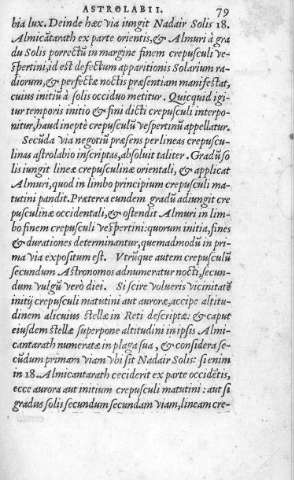 ASTROLABII. 79
bia lux. Deinde hæc via iungit Nadair Solis 18.
Almicātarath ex parte orientis, & Almuri à gra
du Solis porrectū in margine finem crepusculi ve-
spertini, id est defectum apparitionis Solarium ra
diorum, & perfectæ noctis præsentiam manifestat,
cuius initiū à solis occiduo metitur. Quicquid igi
tur temporis initio & fini dicti crepusculi interpo
nitur, haud ineptè crepusculū vespertinū appellatur.
Secūda via negotiū præsens per lineas crepuscu-
linas astrolabio inscriptas, absoluit taliter. Gradū so
lis iungit lineæ crepusculinæ orientali, & applicat
Almuri, quod in limbo principium crepusculi ma-
tutini pandit. Præterea eundem gradū adiungit cre
pusculinæ occidentali, & ostendit Almuri in lim-
bo finem crepusculi vespertini: quorum initia, fines
& durationes determinantur, quemadmodū in pri
ma via expositum est. Vtrūque autem crepusculū
secundum Astronomos adnumeratur nocti, secun-
dum vulgū verò diei. Si scire volueris vicinitatē
initij crepusculi matutini aut auroræ, accipe altitu-
dinem alicuius stellæ in Reti descriptæ: & caput
eiusdem stellæ superpone altitudini in ipsis Almi-
cantarath numeratæ in plaga sua, & considera se-
cūdum primam viam vbi sit Nadair Solis: si enim
in 18. Almicantarath ceciderit ex parte occidētis,
ecce aurora aut initium crepusculi matutini: aut si
gradus solis secundum secundam viam, lineam cre-